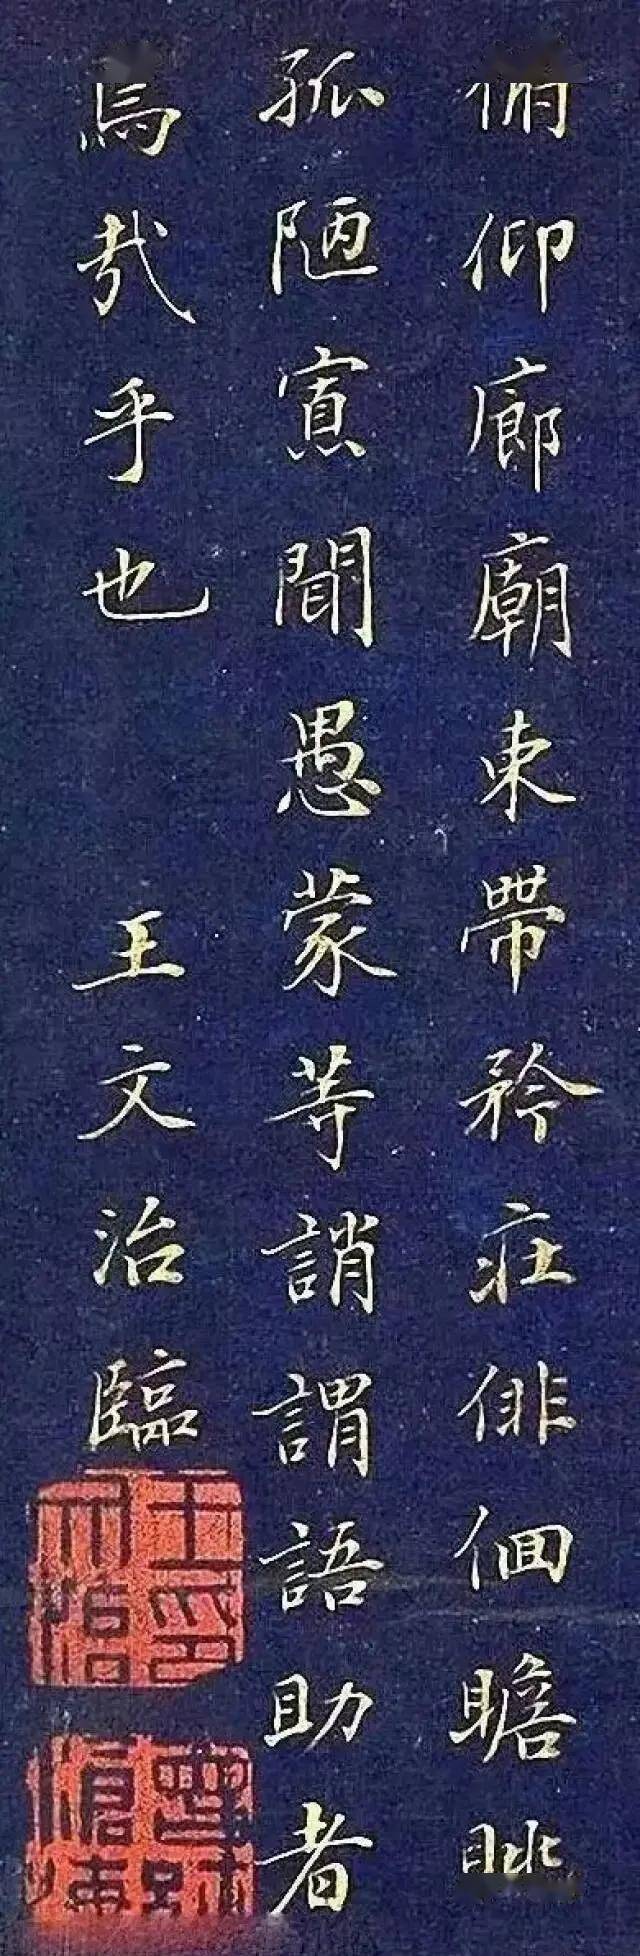 俯仰廊廟束帶矜莊俳佪瞻眺
孤陋寡聞愚蒙等誚謂語助者
焉哉乎也
王文治臨
王文治印